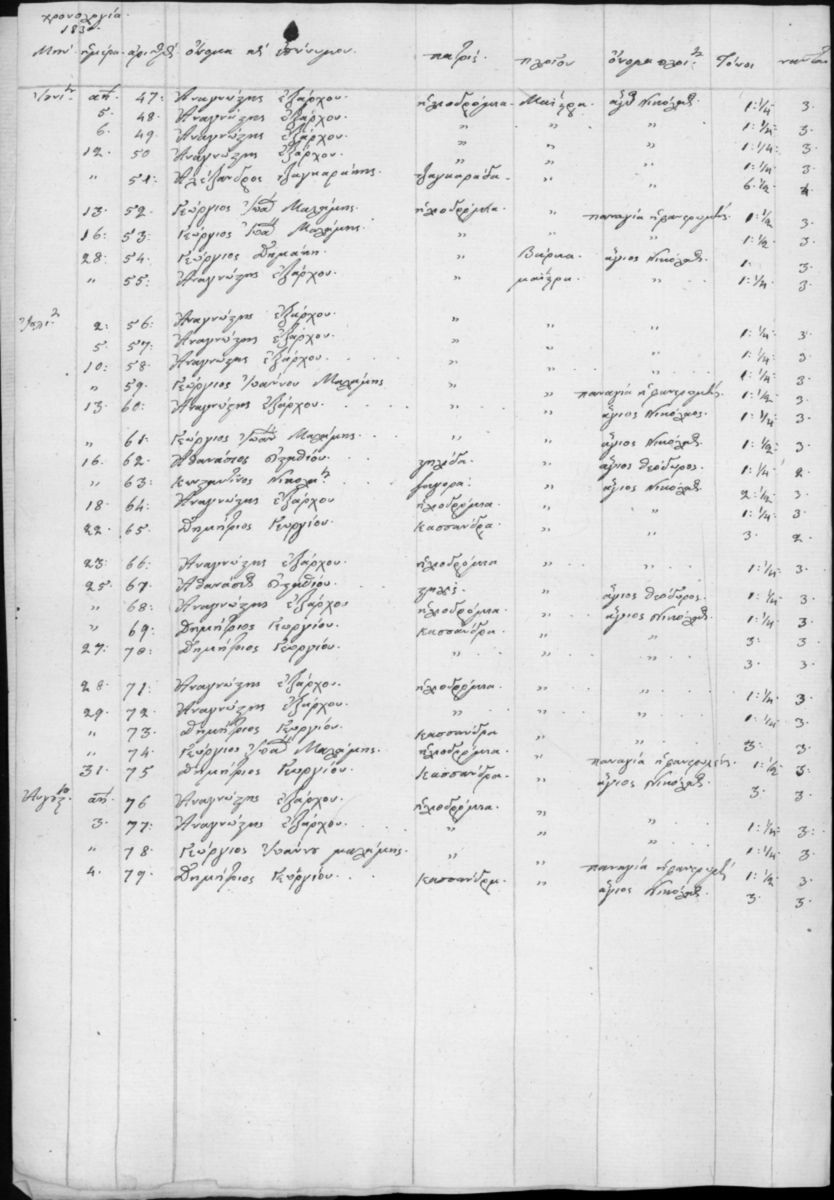 χρονολογία.
183
Μην. ημέρα. αριθμός. όνομα και επώνυμον. πατρίς. πλοίον όνομα πλοί Τόνοι ναύται
Ιουνί αη. 47: Αναγνώστης εξάρχου. ηλιοδρόμια. Μαίστρα. άγι Νικόλα 1:¼ 3.
5. 48. Αναγνώστης εξάρχου. " " " 1:¼: 3.
6. 49. Αναγνώστης εξάρχου. " " " 1:¼: 3.
12. 50 Αναγνώστης εξάρχου. " " " 1:¼ 3.
" 51: Αλέξανδρος τζαγκαράκης. τζαγκαράδα. " 6.½
13. 52. Γεώργιος Ιωάν Μαλάμης. ηλιοδρόμια. " παναγία η φανερωμένη. 1:½ 3.
16: 53: Γεώργιος Ιωάν Μαλάμης. " " " 1:½. 3.
28: 54. Γεώργιος " Βάρκα άγιος Νικόλα 1. 3.
" 55: Αναγνώστης εξάρχου. " μαίστρα. " 1:¼. 3.
Ιουλί 2: 56: Αναγνώστης εξάρχου. " " 1:¼. 3.
5. 57: Αναγνώστης εξάρχου. " " 1:¼. 3.
10: 58. Αναγνώστης εξάρχου. " " " 1:¼: 3.
" 59. Γεώργιος Ιωάννου Μαλάμης " " παναγία η φανερωμένη. 1:½. 3.
13. 60: Αναγνώστης εξάρχου. " " άγιος Νικόλαος. 1:¼: 3.
" 61: Γεώργιος Ιωάν Μαλάμης. " " άγιος Νικόλα 1:½: 3.
16. 62. Αθανάσιος ευσταθίου. " άγιος θεόδωρος. 1:¼. 2.
" 63: Κωνσταντίνος Νικολά ζαγορά: " άγιος Νικόλα 2:½. 3.
18. 64: Αναγνώστης εξάρχου ηλιοδρόμια. " " 1:¼. 3.
22. 65. Δημήτριος Γεωργίου. κασσάνδρα. " " 3. 2.
23. 66: Αναγνώστης εξάρχου. ηλιοδρόμια " " 1:¼. 3.
25. 67. Αθανάσι ευσταθίου. " άγιος θεόδωρος. 1:¼. 3.
" 68: Αναγνώστης εξάρχου ηλιοδρόμια. " άγιος Νικόλα 1:¼. 3.
" 69: Δημήτριος Γεωργίου. κασσάνδρα. " " 3: 3.
27: 70: Δημήτριος Γεωργίου. " " " 3. 3.
28. 71: Αναγνώστης εξάρχου. ηλιοδρόμια. " " 1:¼. 3.
29. 72. Αναγνώστης εξάρχου. " " " 1:¼. 3.
" 73. Δημήτριος Γεωργίου. κασσάνδρα " " 3: 3.
" 74. Γεώργιος Ιωάν Μαλάμης. ηλιοδρόμια. " παναγία η φανερωμένη. 1:½ 3:
31. 75 Δημήτριος Γεωργίου. κασσάνδρα. " άγιος Νικόλα 3. 3.
Αυγού αη. 76 Αναγνώστης εξάρχου. ηλιοδρόμια " " 1:¼. 3:
3. 77: Αναγνώστης εξάρχου. " " " 1:¼. 3.
" 78. Γεώργιος Ιωάννου μαλάμης. " " παναγία η φανερωμένη 1:½. 3.
4. 79. Δημήτριος Γεωργίου. κασσάνδρα. " άγιος Νικόλα 3. 3.